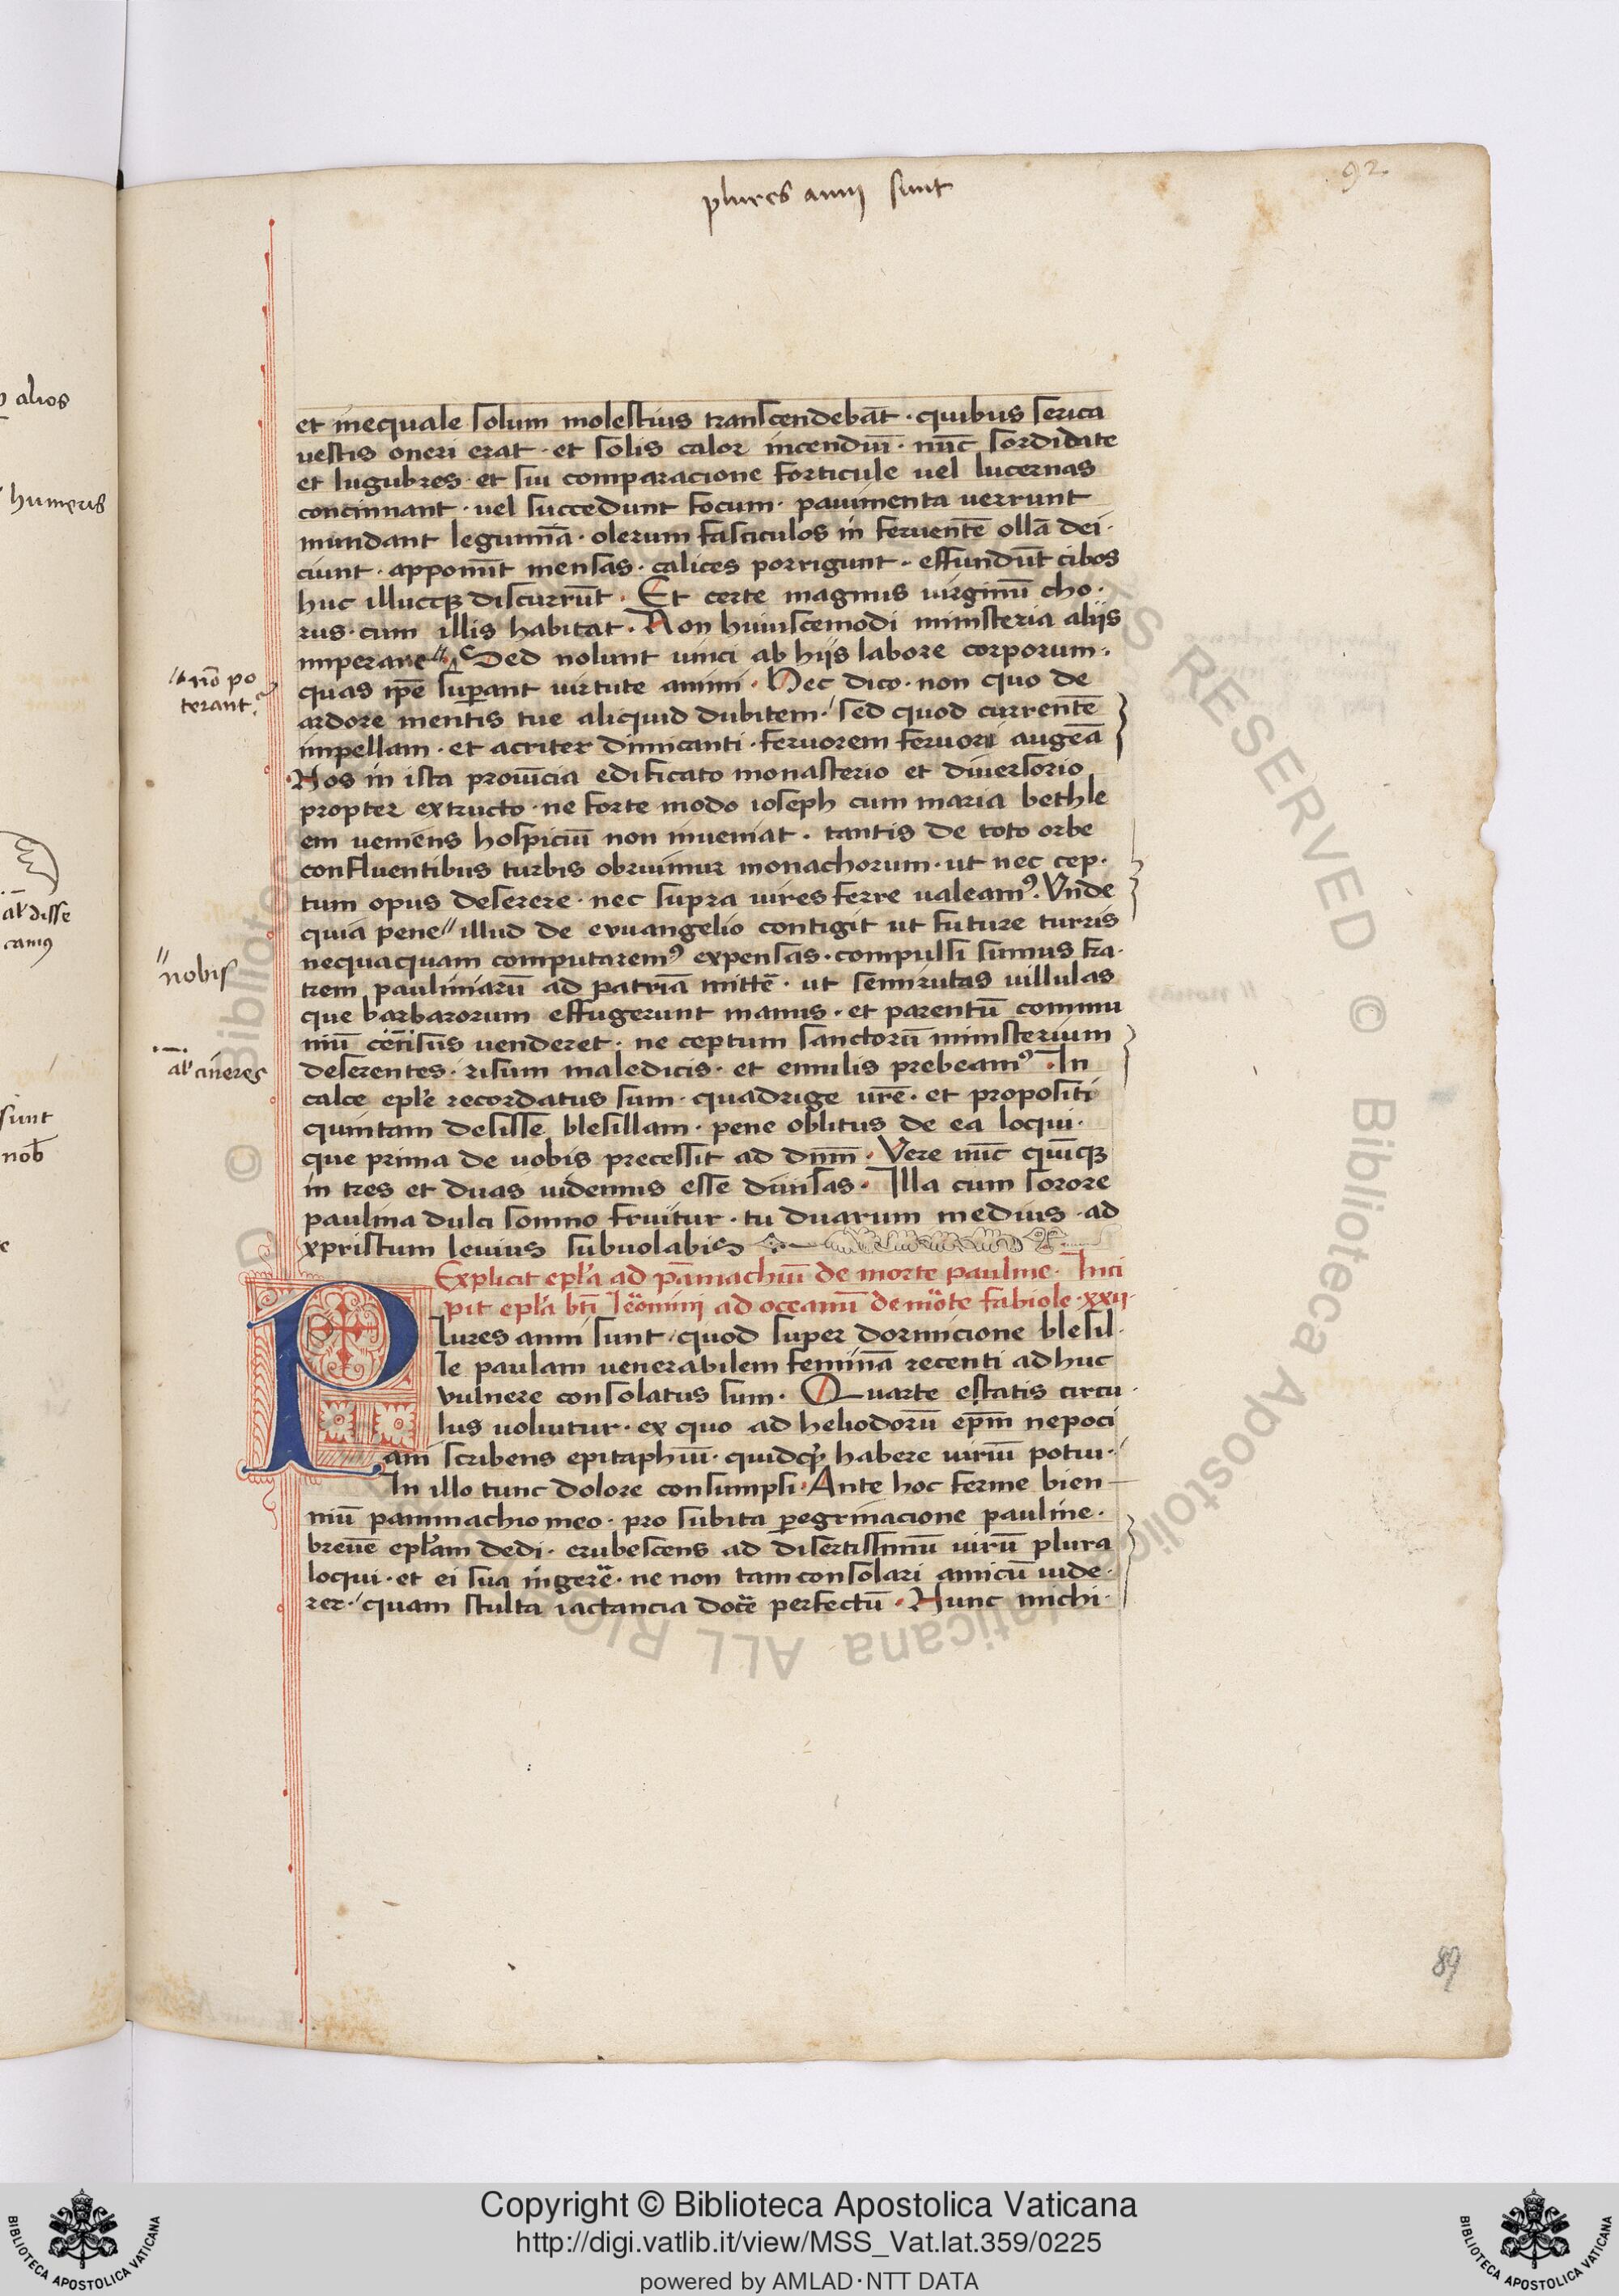 plures anni sunt
92
et inequale solum molestius transcendebāt · quibus serica
vestis oneri erat · et solis calor incendiū · nūc sordidate
et lugubres · et sui comparacione forticule uel lucernas
concinnant · uel succedunt focum · pauimenta uerrunt
mundant legumīa · olerum fasciculos in feruentē ollā dei·
ciunt · apponūt mensas · calices porrigunt · effundūt cibos
huc illucqꝫ discurrūt · Et certe magnus uirginū cho·
rus · cum illis habitat · Non huiuscemodi ministeria aliis
imperare〃 Sed nolunt uinci ab hijs labore corporum·
〃nō po
terant
quas ip̄e suꝑant uirtute animi · Hec dico · non quo de
ardore mentis tue aliquid dubitem · sed quod currentē
impellam · et acriter dimicanti · feruorem feruori augeā
Nos in ista prouīcia edificato monasterio et diuersorio
propter extructo · ne forte modo ioseph cum maria bethle
em ueniēns hospiciū non inueniat · tantis de toto orbe
confluentibus turbis obruimur monachorum · ut nec cep·
tum opus deserere · nec supra uires ferre ualeamꝰ · Vnde
quia pene〃 illud de evuangelio contigit ut future turris
〃nobis
nequaquam computaremꝰ expensas · compulsi sumus fra·
trem paulinianū ad patriā mittē · ut semirutas uillulas
que barbarorum effugerunt manus · et parentū commu
niū cēnsūs uenderet · ne ceptum sanctorū ministerium
al' cineres
deserentes · risum maledicis · et emulis prebeamꝰ · In
calce epl'e recordatus sum · quadrige vr̄e · et propositi
quintam desisse blesillam · pene oblitus de ea loqui·
que prima de uobis precessit ad dnm̄ · Vere nūc quīqꝫ
in tres et duas uidemus esse diuisas · Illa cum sorore
paulina dulci somno fruitur · tu duarum medius · ad
xpristum leuius subuolabis
Explicit epl'a ad pāmachiū de morte pauline · Inci
pit epl'a bt̄i Ieōnimi ad oceanū de mōte fabiole · xxij·
Plures anni sunt · quod super dormicione blesil·
le paulam uenerabilem feminā recenti adhuc
vulnere consolatus sum · Quarte estatis circu·
lus uoluitur · ex quo ad heliodorū ep̄m nepoci
am scribens epitaphiū · quidqͥd habere uiriū potui·
In illo tunc dolore consumpsi · Ante hoc ferme bien
niū pammachio meo · pro subita ꝑegrinacione pauline·
breuē epl'am dedi · erubescens ad disertissimū uirū plura
loqui · et ei sua ingerē · ne non tam consolari amicū uide·
rer · quam stulta iactancia docē perfectū · Nunc michi·
89
alios
humeris
al' disse
camꝰ
sunt
nob̄
Copyright © Biblioteca Apostolica Vaticana
http://digi.vatlib.it/view/MSS_Vat.lat.359/0225
powered by AMLAD·NTT DATA
BIBLIOTECA APOSTOLICA VATICANA
BIBLIOTECA APOSTOLICA VATICANA